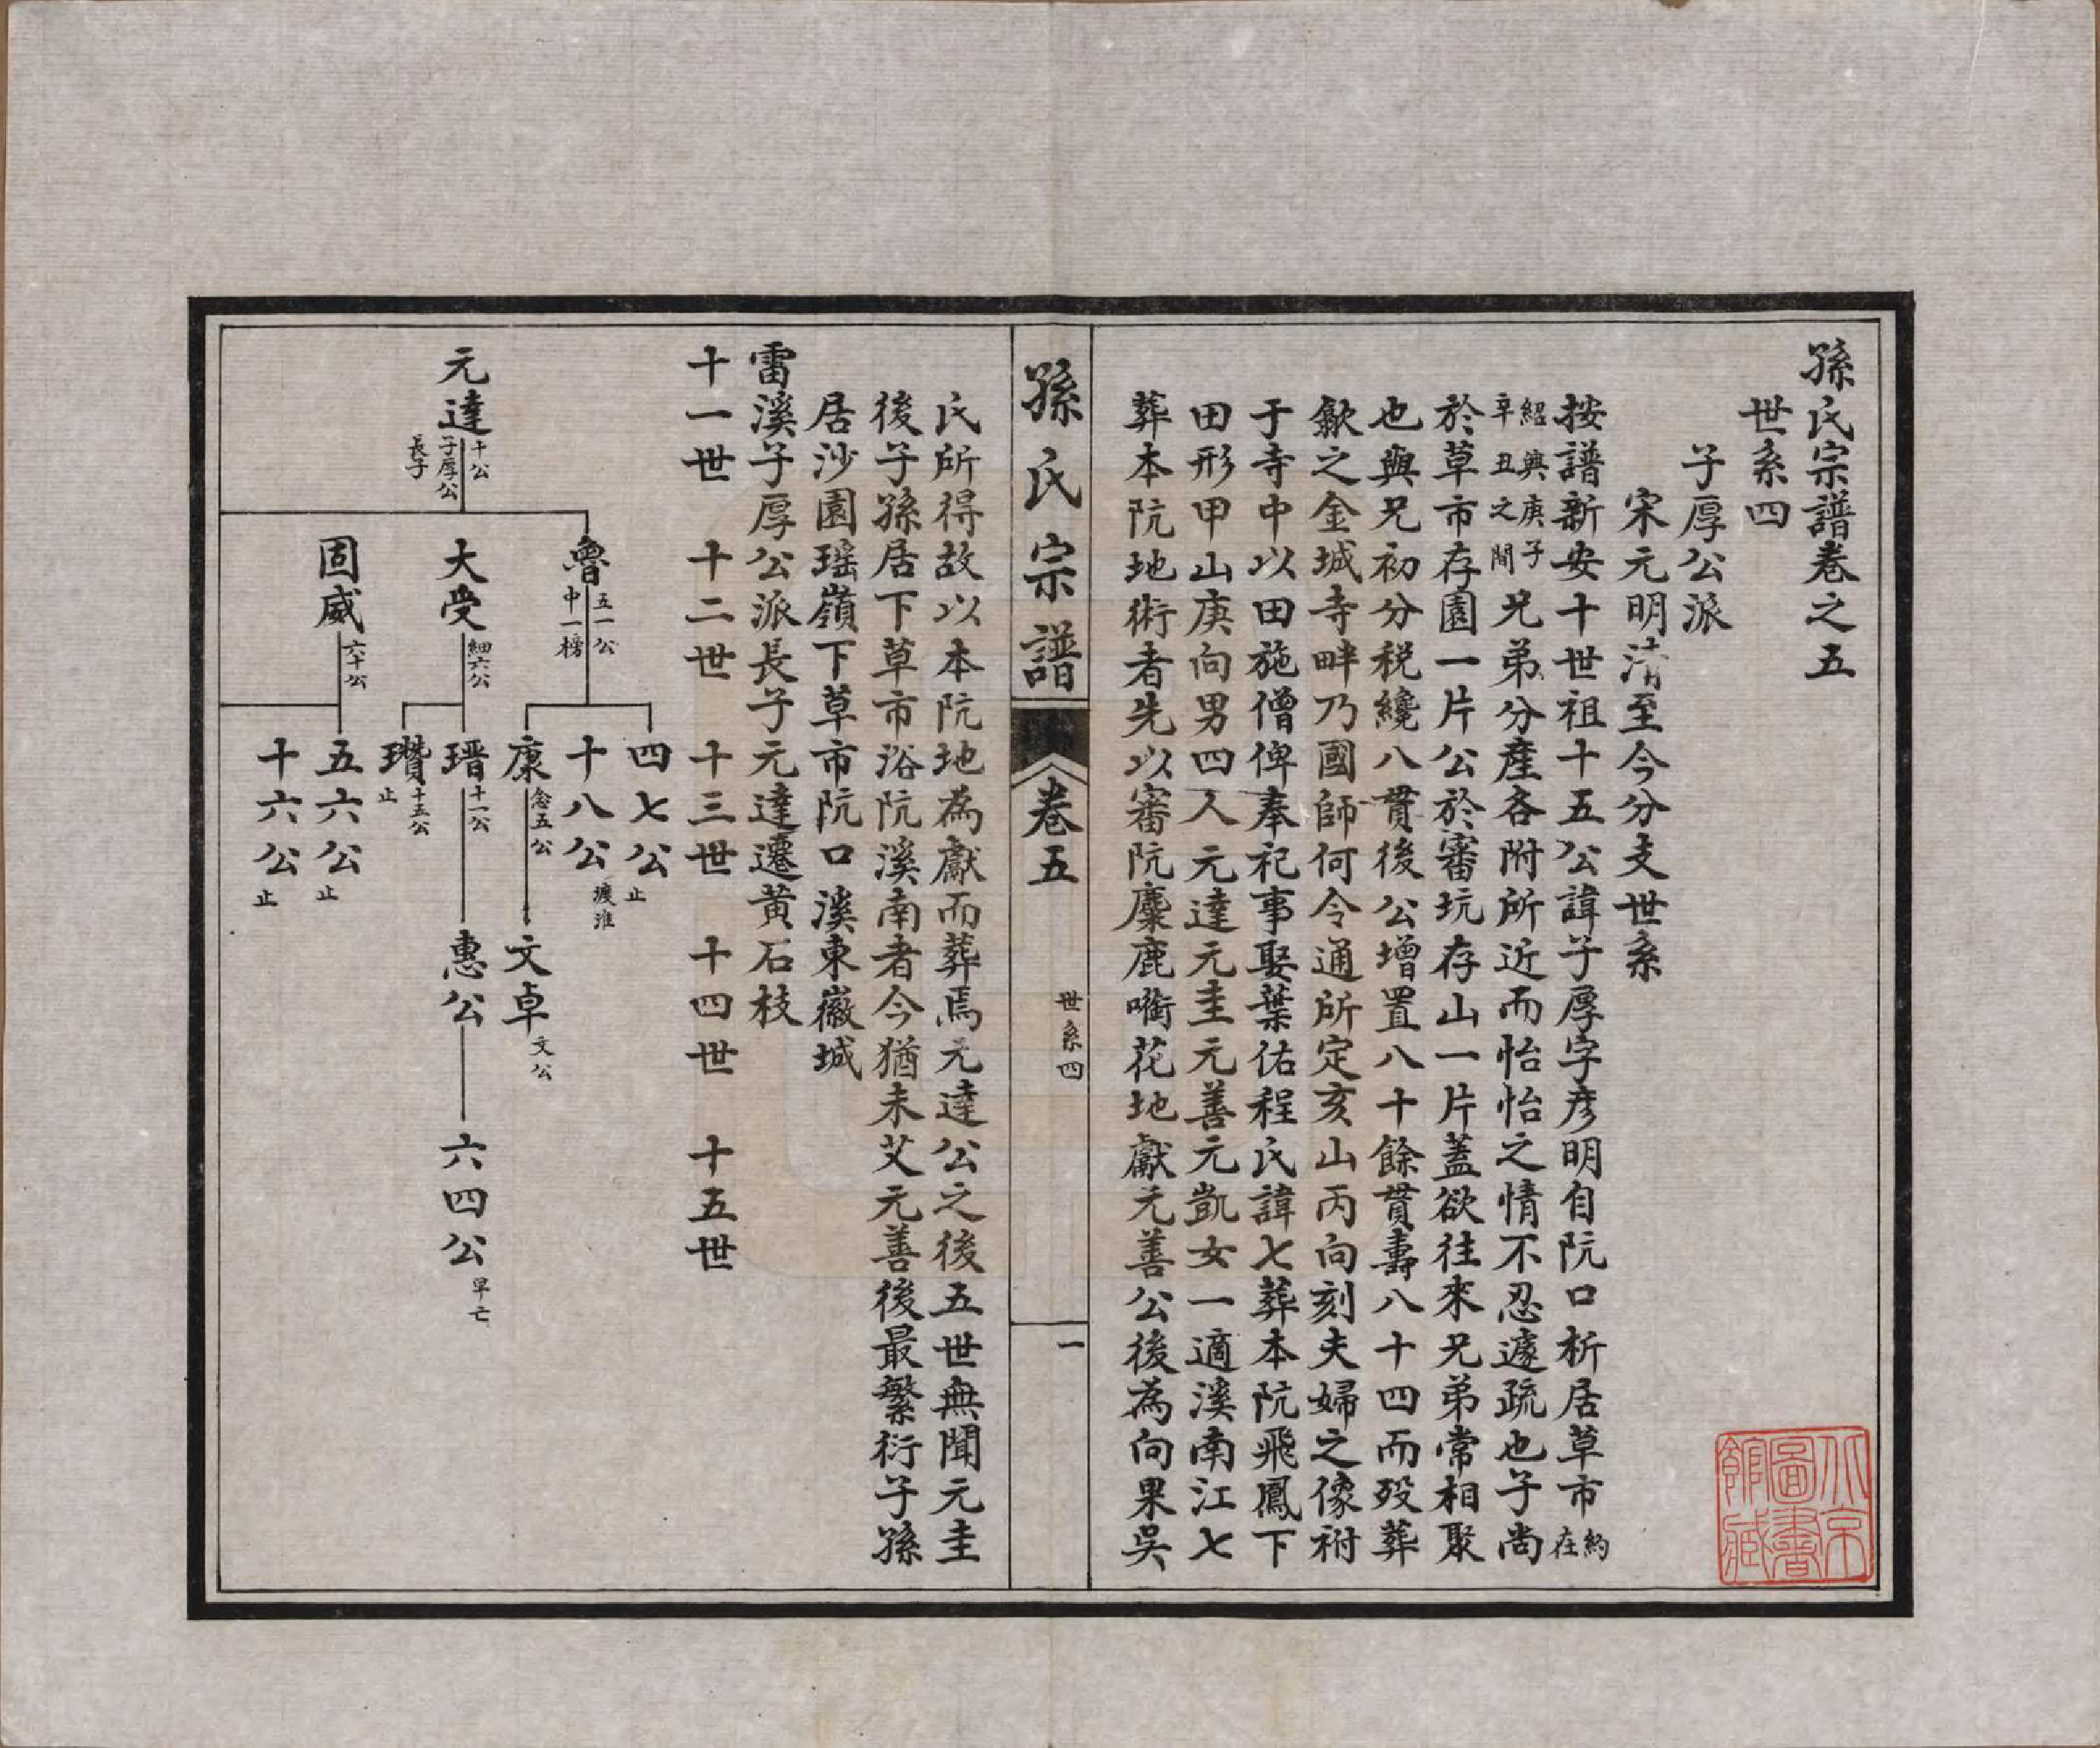 孫氏宗譜卷之五
世系四
子厚公派
宋元明清至今分支世系
按譜新安十世祖十五公諱子厚字彥明自阮口析居草市約在
紹興庚子辛丑之間兄弟分產各附所近而怡怡之情不忍遽疏也子尚
於草市存園一片公於審坑存山一片蓋欲往來兄弟常相聚
也與兄初分税纔八貫後公增置八十餘貫壽八十四而歿葬
歙之金城寺畔乃國師何令通所定亥山丙向刻夫婦之像祔
于寺中以田施僧俾奉祀事娶葉佑程氏諱七葬本阮飛鳳下
田形甲山庚向男四人元達元圭元善元凱女一適溪南江七
葬本阮地術者先以審阮麋鹿啣花地獻元善公後為向果吳
孫氏宗譜
卷五
世系四
一
氏所得故以本阮地為獻而葬焉元達公之後五世無聞元圭
後子孫居下草市浴阮溪南者今猶未艾元善後最繁衍子孫
居沙園瑶嶺下草市阮口溪東徽城
雷溪子厚公派長子元達遷黄石枝
十一世 十二世 十三世 十四世 十五世
四七公 止
魯 五一公 中一榜 十八公 渡淮
康 念五公 文卓 文公
元達 十公 子厚公長子 大受 細六公 瑨 十一公 惠公 六四公 早亡
瓚 十五公 止
固威 六十公 五六公 止
十六公 止
北京圖書館藏